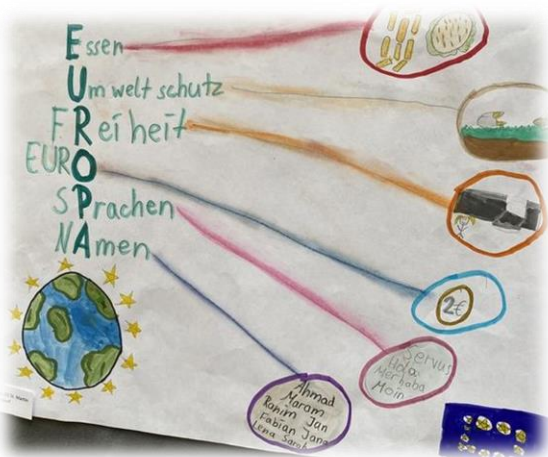 Essen
Umweltschutz
FReiheit
EURO
SPrachen
NAmen
2€
Servus
Hola
Merhaba
Moin
Ahmad
Maram
Rahim Jan
Fabian Jana
Lena Sarah